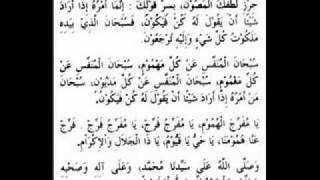 حِرْزِ لُطْفِكَ الْمَصُوْنِ، بِسِرِّ قَوْلِكَ : إِنَّمَا أَمْرُهُ إِذَا أَرَادَ
شَيْئًا أَنْ يَقُوْلَ لَهُ كُنْ فَيَكُوْنُ، فَسُبْحَانَ الَّذِيْ بِيَدِهِ
مَلَكُوْتُ كُلِّ شَيْءٍ وَإِلَيْهِ تُرْجَعُوْنَ.
سُبْحَانَ الْمُنَفِّسِ عَنْ كُلِّ مَهْمُوْمٍ، سُبْحَانَ الْمُنَفِّسِ عَنْ
كُلِّ مَغْمُوْمٍ، سُبْحَانَ الْمُنَفِّسِ عَنْ كُلِّ مَدْيُوْنٍ، سُبْحَانَ
مَنْ أَمْرُهُ إِذَا أَرَادَ شَيْئًا أَنْ يَقُوْلَ لَهُ كُنْ فَيَكُوْنُ.
يَا مُفَرِّجَ الْهُمُوْمِ، يَا مُفَرِّجُ فَرِّجْ، يَا مُفَرِّجُ فَرِّجْ . فَرِّجْ
عَنَّا هُمُوْمَنَا، يَا حَيُّ يَا قَيُّوْمُ، يَا ذَا الْجَلَالِ وَالْإِكْرَامِ.
وَصَلَّى اللهُ عَلَى سَيِّدِنَا مُحَمَّدٍ، وَعَلَى آلِهِ وَصَحْبِهِ